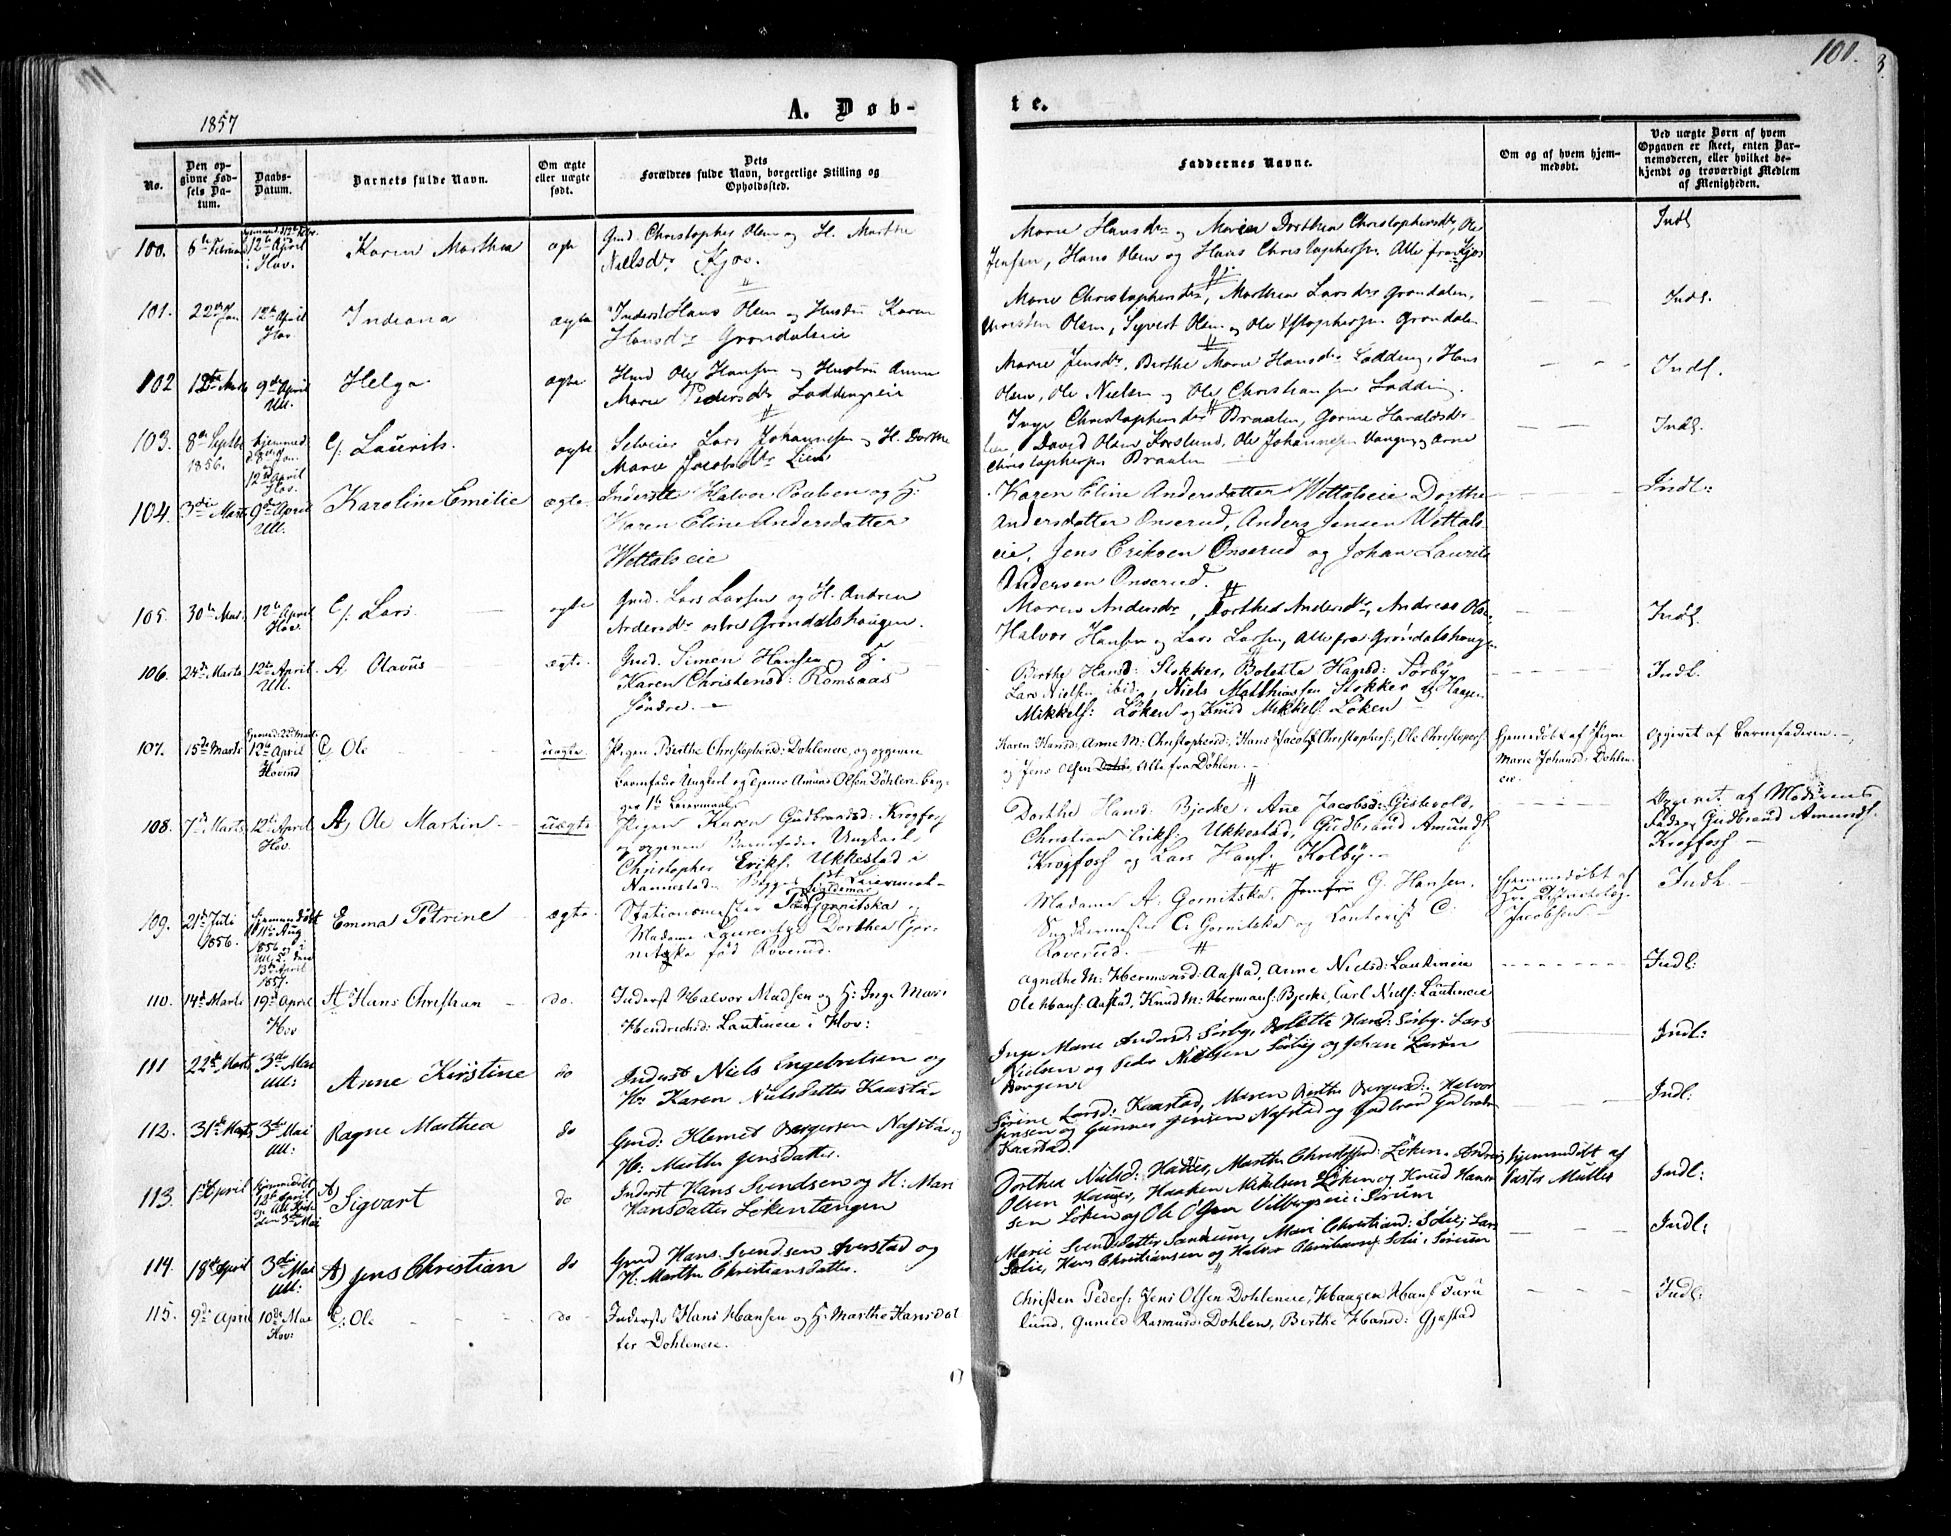 101.
1857
A. Døb-
te.
No.
Den op-
givne Fød-
sels Da-
tum.
Daabs-
Datum.
Barnets fulde Navn.
Om ægte
eller uægte
født.
Dets
Forældres fulde Navn, borgerlige Stilling og
Opholdssted.
Faddernes Navne.
Om og af hvem hjem-
medøbt.
Ved uægte Børn af hvem
Opgaven er skeet, enten Bar-
nemoderen, eller hvilket be-
kjendt og troværdigt Medlem
af Menigheden.
100.
12te April
i Hov.
Karen Marthea
ægte
Gmd. Christopher Olsen og H. Marthe
Nielsdr. Kjos.
Maren Hansdr og Maren Dorthea Christophersdr, Ole
Jensen, Hans Olsen og Hans Christophersen. Alle fra Kjos
Indl
101.
22de Jan
12te April
Hov.
Indiana
ægte
Inderst Hans Olsen og Hustru Karen
Hansdr Grøndalseie
Marie Christophersdr, Marthea Larsdr Grøndalen,
Olsen, Syvert Olsen og Ole Christophersen Grøndalen
Indl.
102
9de April
Ull.
Helga
ægte
Hmd Ole Hansen og Hustru Anne
Marie Pedersdr Laddingeie
Marie Jensdr, Berthe Marie Hansdr Ladding, Hans
Olsen, Ole Nielsen og Ole Christiansen Ladding.
Indl.
103.
8de Septbr
1856.
hjemmed
12te April
Hov.
C/. Laurits.
ægte
Selveier Lars Johannesen og H. Dorthe
Marie Jacobsdr Lien
Inge Christophersdr Braaten, Gorine Haraldsdr
Lien, David Olsen Korslund, Ole Johannesen Vangen og Arne
Christophersen Braaten
Indl.
104.
3die Marts
9de April
Ull.
Karoline Emilie
ægte
Inderste Halvor Paulsen og H:
Karen Eline Andersdatter
Wettalseie
Karen Eline Andersdatter Wettalseie Dorthe
Andersdatter Onserud, Anders Jensen Wettals-
eie, Jens Eriksen Onserud og Johan Laurits
Andersen Onserud.
Indl:
105.
30te Mar.
12te April
Hov.
C/. Lars
ægte
Gmd. Lars Larsen og H. Andrea
Andersdr østre Grøndalshaugen.
Maren Andersdr, Dorthea Andersdr, Andreas Ols.
Halvor Hansen og Lars Larsen, Alle fra Grøndalshaug-
Indl.
106.
24de Marts
12te April
Ull.
A. Olavus
ægte.
Gmd. Simen Hansen og H.
Karen Christensd: Romsaas
søndre.
Berthe Hansd: Stokker, Bolette Hansd: Sørby
Lars Nielsen ibid., Niels Matthiassen Stokker og Haagen
Mikkels: Løken og Knud Mikkels: Løken
Indl.
107.
15de Marts
12te April
Hovind
C/ Ole
uægte
Pigen Berthe Christophersd: Dohleneie, og opgiven
Barnefader Ungkarl og Tjener Amund Olsen Døhlen. Beg-
ges 1ste Leiermaal.
Karen Hansd: Anne M: Christophersd: Hans Jacob Christophers: Ole Christophers:
og Jens Olsen Alle fra Døhlen.
hjemedøbt af Pigen
Marie Johansd: Dohlen-
eie.
Opgivet af Barnefaderen.
108.
7de Marts
12te April
Hov.
A) Ole Martin
uægte
Pigen Karen Gudbrandsd: Krogfos
og opgiven Barnefader Ungkarl
Christopher Eriks. Ukkestad i
Nannestad. Begges 1ste Leiermaal.
Dorthe Hansd: Bjerke, Ane Jacobsd: Gislevold,
Christian Eriks: Ukkestad, Gudbrand Amunds:
Krogfoss og Lars Hans: Kolby.
Opgivet af Moderens
Fader, Gudbrand Amunds.
Krogfoss
109.
21de Juli
1856.
hjemmedøbt
11te Aug
1856 og i
Ull. den
13de April
1857.
Emma Petrine
ægte
Stationsmester Gornitska og
Madame Laurentze Dorthea Gor-
nitzka fød Roverud.
Madame A. Gornitska, Jomfru G. Hansen.
Snedkermester C. Gornitska og Contorist C.
Roverud.
hjemmedøbt af
Jacobsen
Indl.
110.
14de Marts
19de April
Hov
A Hans Christian
do.
Inderst Halvor Madsen og H: Inge Mar:
Hendrichsd: Lautineie i Hov:
Agnethe M: Hermansd: Aastad, Anne Nielsd: Lautineie
Ole Hans: Aastad, Knud M: Hermans: Bjerke, Carl Niels: Lautineie
Indl:
111
22de Marts
3die Mai
Ull:
Anne Kirstine
do
Inderst Niels Engebretsen og
H: Karen Nielsdatter Kaasta-
Inge Marie Andersd: Sørby, Bolette Hansd: Sørby. Lars
Nielsen og Peder Nielsen Sørby og Johan Larsen
Borgen
Indl:
112.
31te Marts
3die Mai
Ull:
Ragne Marthea
do
Gmd: Klemet Bergersen Nafstad og
H: Marthe Jensdatter.
Sørine Larsd: Kaarstad, Maren Berthe Bergersd: Halvor
Jensen og Gunner Jensen Nafstad og Gudbrand Gudbrands
Kaastad.
Indl:
113.
1ste April
hjemmedøbt
den 3die Mai
A) Sigvart
do
Inderst Hans Svendsen og H: Mari
Hansdatter Løkentangen
Dorthea Nielsd: Hauer, Marthe Christoffersd: Løken. Andreas
Olsen Hauer, Haaken Mikelsen Løken og Knud Hans-
sen Løken og Ole Olsen Vilbergseie i Sørum
hjemmedøbt af
Pastor Müller
Indl:
114.
18de April
3die Mai
Ull:
A) Jens Christian
do
Gmd Hans Svendsen Averstad og
H: Marthe Christiansdatter.
Marie Svendsdatter Sandnum, Mari Christiansd: Solie, Lars
Solie, Hans Christiansen og Halvor Christians: Solie i Sørum
Indl:
115.
9de April
10de Mai
Hov:
C: Ole
do
Inderste Hans Hansen og H: Marthe Hansdat
ter Dohleneie.
Christen Peders: Jens Olsen Dohleneie, Haagen Hans: Furu
lund, Gunild Rasmusd: Dohlen, Berthe Hansd: Gjestad
Indl: